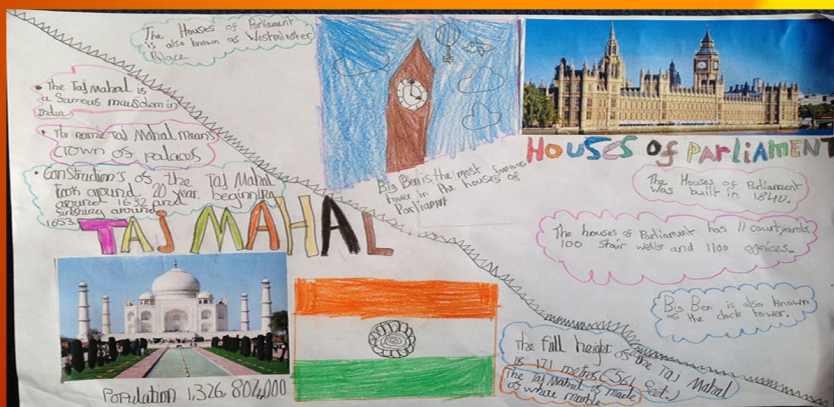 The Houses of Parliament
is also known as Westminster
Palace.
• The Taj Mahal is
a famous mausoleum in
India.
• The name Taj Mahal means
crown of palaces
• Construction's of the Taj Mahal
took around 20 year beginning
around 1632 and
finishing around
1653.
TAJ MAHAL
Population 1,326,802,000
Big Ben is the most famous
tower in the houses of
Parliament
HOUSES of PARLIAMENT
The Houses of Parliament
was built in 1840.
The houses of Parliament has 11 courtyards,
100 stair wells and 1100 offices.
Big Ben is also known
as the clock tower.
The full height of the Taj Mahal
is 171 metres (561 feet.)
The Taj Mahal is made
of white marble